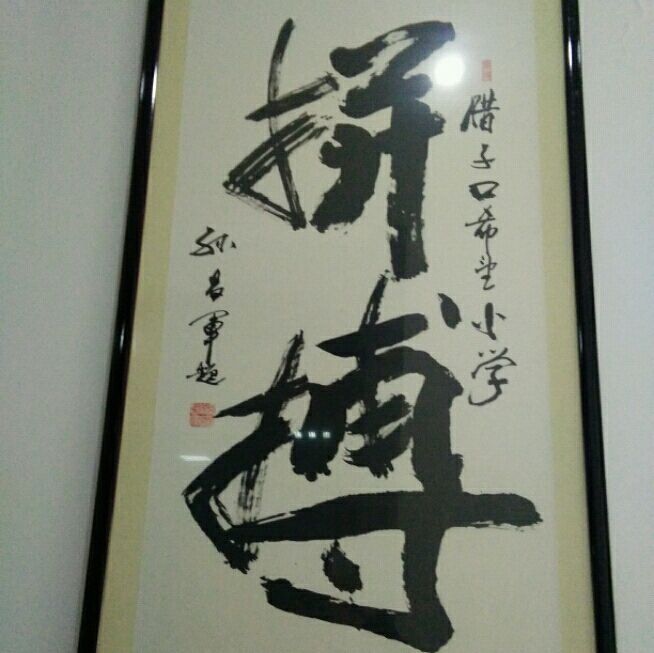 腊子口希望小学
拼搏
孙昌军题